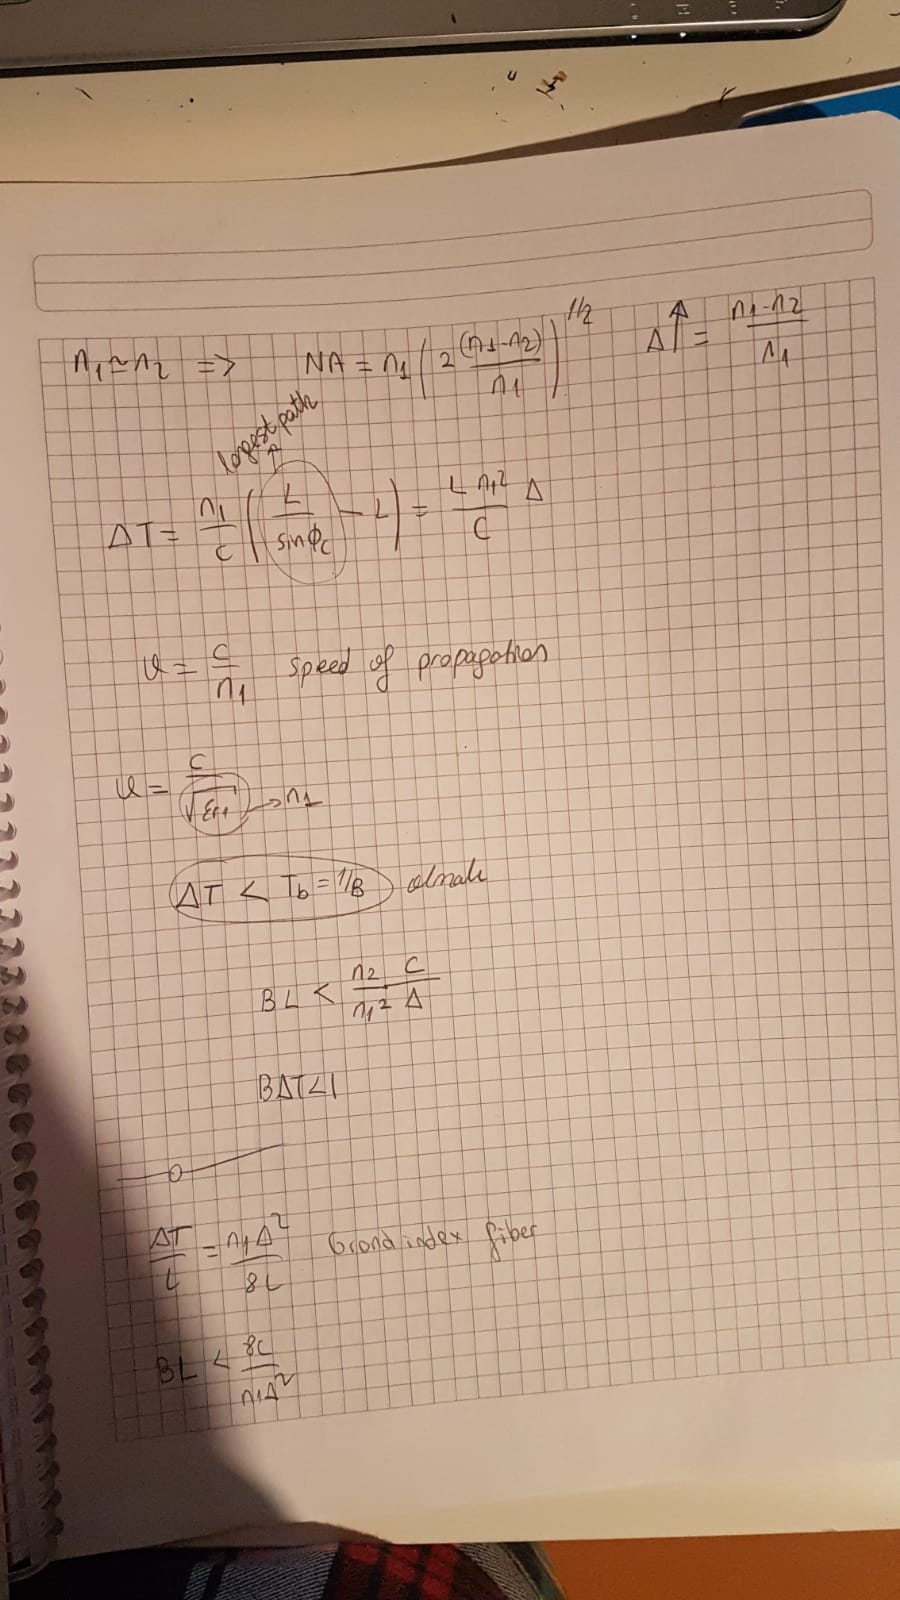 n₁ ≃ n₂ => NA = n₁ (2 (n₁-n₂)/n₁)^1/2 Δ↑ = (n₁-n₂)/n₁
longest path
ΔT = n₁/c (L/sinϕc - L) = L n₁²/c Δ
υ = c/n₁ speed of propagation
υ = c/√εr₁ → n₁
ΔT < Tb = 1/B olmalı
BL < n₂/n₁² c/Δ
BΔT<1
ΔT/L = n₁Δ²/8c index fiber
BL < 8c/n₁Δ²